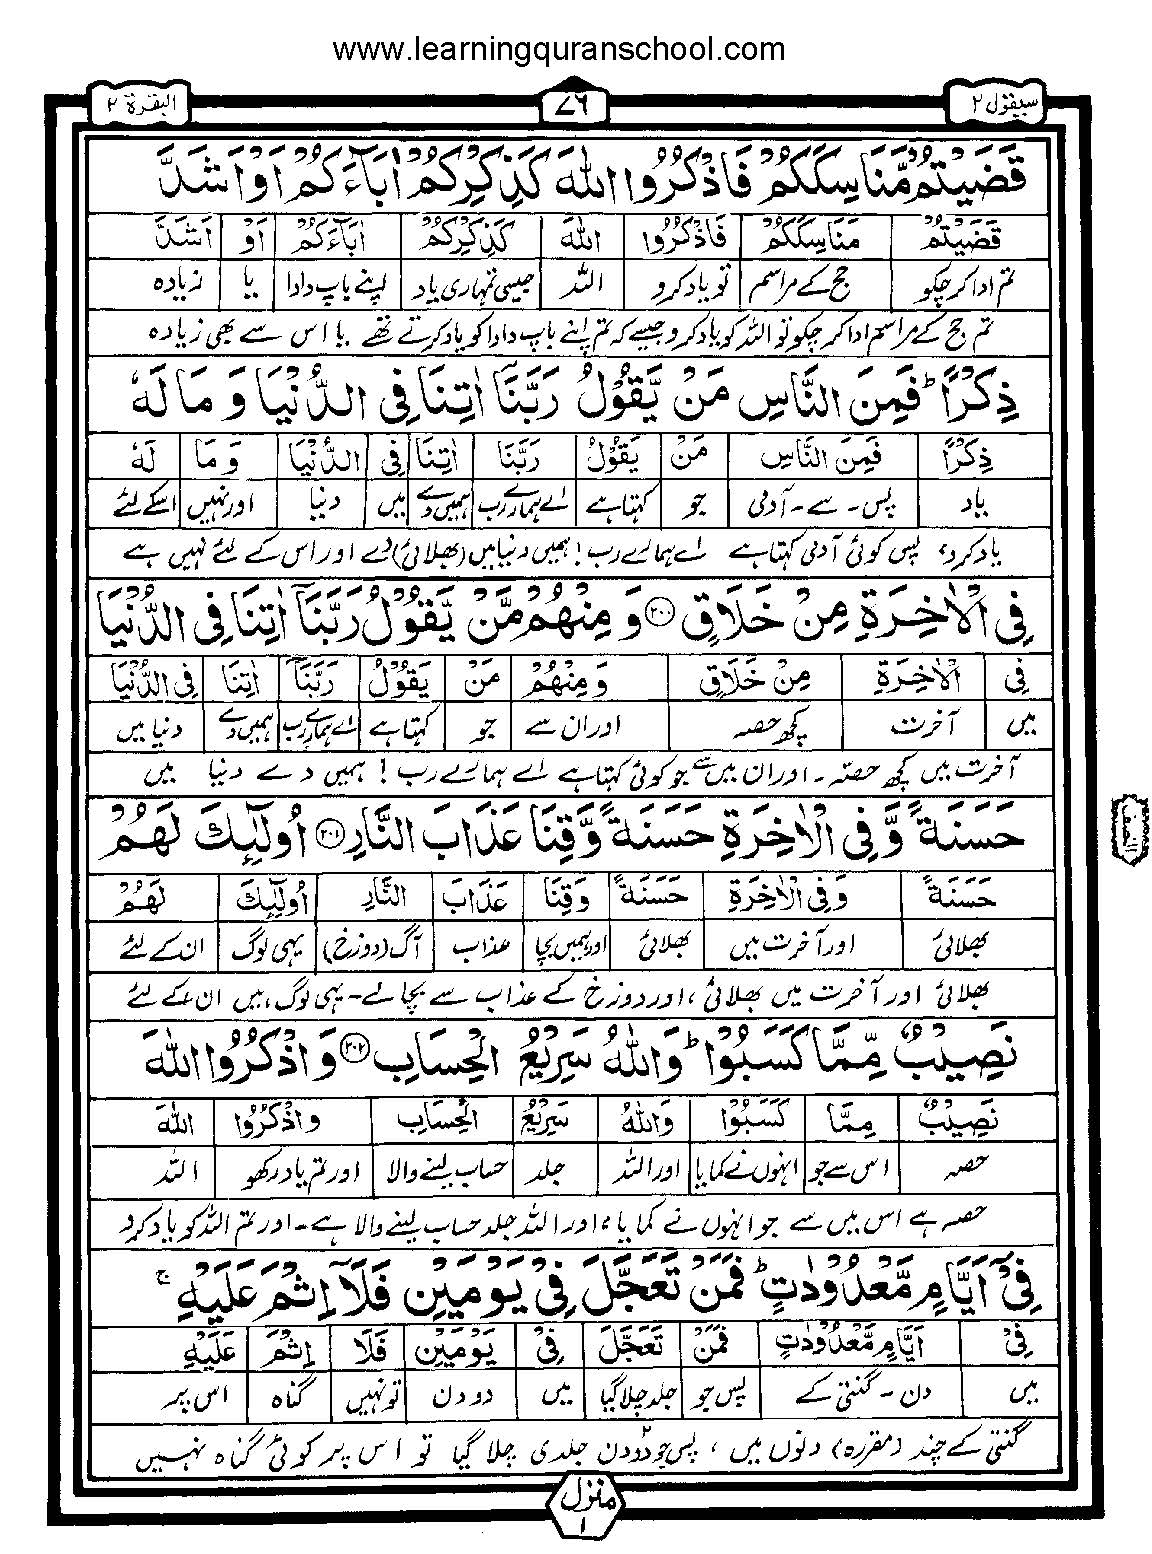 www.learningquranschool.com
سیقول ۲ ۷۶ البقرة ۲
قَضَيْتُمْ مَّنَاسِكَكُمْ فَاذْكُرُوا اللّٰهَ كَذِكْرِكُمْ اٰبَآءَكُمْ اَوْ اَشَدَّ
قَضَيْتُمْ مَنَاسِكَكُمْ فَاذْكُرُوا اللّٰهَ كَذِكْرِكُمْ اٰبَآءَكُمْ اَوْ اَشَدَّ
تم ادا کر چکو حج کے مراسم تو یاد کرو اللہ جیسی تمہاری یاد اپنے باپ دادا یا زیادہ
تم حج کے مراسم ادا کر چکو تو اللہ کو یاد کرو جیسے کہ تم اپنے باپ دادا کو یاد کرتے تھے یا اس سے بھی زیادہ
ذِكْرًا ؕ فَمِنَ النَّاسِ مَنْ يَّقُوْلُ رَبَّنَاۤ اٰتِنَا فِى الدُّنْيَا وَ مَا لَهٗ
ذِكْرًا فَمِنَ النَّاسِ مَنْ يَقُوْلُ رَبَّنَا اٰتِنَا فِى الدُّنْيَا وَ مَا لَهٗ
یاد پس۔ سے۔ آدمی جو کہتا ہے اے ہمارے رب ہمیں دے میں دنیا اور نہیں اسکے لئے
یاد کرو، پس کوئی آدمی کہتا ہے اے ہمارے رب! ہمیں دنیا میں (بھلائی) دے اور اس کے لئے نہیں ہے
فِى الْاٰخِرَةِ مِنْ خَلَاقٍ ۲۰۰ وَ مِنْهُمْ مَّنْ يَّقُوْلُ رَبَّنَاۤ اٰتِنَا فِى الدُّنْيَا
فِى الْاٰخِرَةِ مِنْ خَلَاقٍ وَ مِنْهُمْ مَنْ يَقُوْلُ رَبَّنَاۤ اٰتِنَا فِى الدُّنْيَا
میں آخرت کچھ حصہ اور ان سے جو کہتا ہے اے ہمارے رب ہمیں دے دنیا میں
آخرت میں کچھ حصہ۔ اور ان میں سے جو کوئی کہتا ہے اے ہمارے رب! ہمیں دے دنیا میں
حَسَنَةً وَّ فِى الْاٰخِرَةِ حَسَنَةً وَّقِنَا عَذَابَ النَّارِ ۲۰۱ اُولٰٓئِكَ لَهُمْ
النصف
حَسَنَةً وَ فِى الْاٰخِرَةِ حَسَنَةً وَقِنَا عَذَابَ النَّارِ اُولٰٓئِكَ لَهُمْ
بھلائی اور آخرت میں بھلائی اور ہمیں بچا عذاب آگ (دوزخ) یہی لوگ ان کے لئے
بھلائی اور آخرت میں بھلائی، اور دوزخ کے عذاب سے بچا لے۔ یہی لوگ ہیں ان کے لئے
نَصِيْبٌ مِّمَّا كَسَبُوْا ؕ وَاللّٰهُ سَرِيْعُ الْحِسَابِ ۲۰۲ وَ اذْكُرُوا اللّٰهَ
نَصِيْبٌ مِمَّا كَسَبُوْا وَاللّٰهُ سَرِيْعُ الْحِسَابِ وَاذْكُرُوا اللّٰهَ
حصہ اس سے جو انہوں نے کمایا اور اللہ جلد حساب لینے والا اور تم یاد رکھو اللہ
حصہ ہے اس میں سے جو انہوں نے کمایا، اور اللہ جلد حساب لینے والا ہے۔ اور تم اللہ کو یاد کرو
فِىْۤ اَيَّامٍ مَّعْدُوْدٰتٍ ؕ فَمَنْ تَعَجَّلَ فِىْ يَوْمَيْنِ فَلَاۤ اِثْمَ عَلَيْهِ ۚ
فِىْ اَيَّامٍ مَّعْدُوْدٰتٍ فَمَنْ تَعَجَّلَ فِىْ يَوْمَيْنِ فَلَا اِثْمَ عَلَيْهِ
میں دن۔ گنتی کے پس جو جلد چلا گیا میں دو دن تو نہیں گناہ اس پر
گنتی کے چند (مقررہ) دنوں میں، پس جو دو دن جلدی چلا گیا تو اس پر کوئی گناہ نہیں
منزل ۱